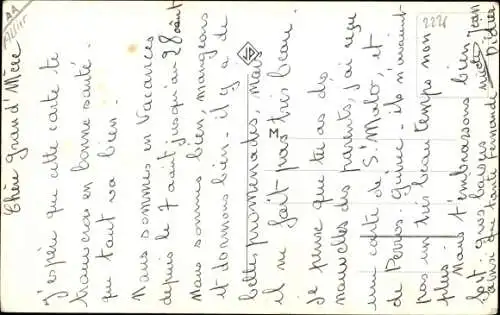 AA
Allier
2226
Chère grand'Mère
J'espère que cette carte te
trouvera en bonne santé.
que tout va bien.
Nous sommes en vacances
depuis le 7 août jusqu'au 28 août
Nous sommes bien, mangeons
et dormons bien - il y a de
belles promenades, mais
il ne fait pas très beau.
Je pense que tu as des
nouvelles des parents, j'ai reçu
une carte de St Malo et
de Perros. Guirec - ils n'avaient
pas un très beau temps non
plus. Nous t'embrassons bien
fort gros baisers Jean
ainsi que tante Fernande Didier